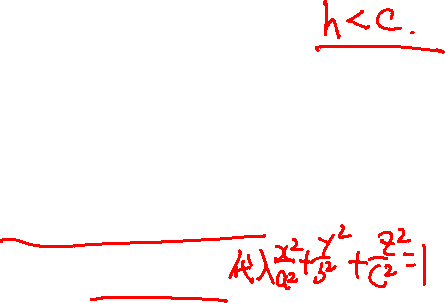 h<c.
代入x²/a²+y²/b²+z²/c²=1